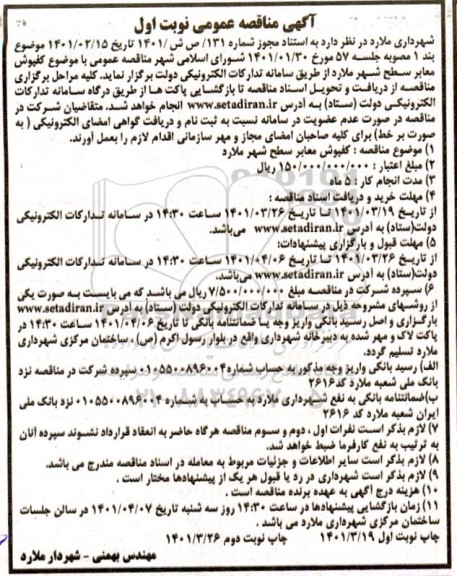 آگهی مناقصه عمومی نوبت اول
شهرداری ملارد در نظر دارد به استناد مجوز شماره ۱۳۱/ ص ش /۱۴۰۱ تاریخ ۱۴۰۱/۰۲/۱۵ موضوع
بند ۱ مصوبه جلسه ۵۷ مورخ ۱۴۰۱/۰۱/۳۰ شورای اسلامی شهر مناقصه عمومی با موضوع کفپوش
معابر سطح شهر ملارد از طریق سامانه تدارکات الکترونیکی دولت برگزار نماید. کلیه مراحل برگزاری
مناقصه از دریافت و تحویل اسناد مناقصه تا بازگشایی پاکت ها از طریق درگاه سامانه تدارکات
الکترونیکی دولت (ستاد) به آدرس www.setadiran.ir انجام خواهد شد. متقاضیان شرکت در
مناقصه در صورت عدم عضویت در سامانه نسبت به ثبت نام و دریافت گواهی امضای الکترونیکی ( به
صورت بر خط) برای کلیه صاحبان امضای مجاز و مهر سازمانی اقدام لازم را بعمل آورند.
۱) موضوع مناقصه : کفپوش معابر سطح شهر ملارد
۲) مبلغ اعتبار : ۱۵۰/۰۰۰/۰۰۰/۰۰۰ ریال
۳) مدت انجام کار : ۵ ماه
۴) مهلت خرید و دریافت اسناد مناقصه :
از تاریخ ۱۴۰۱/۰۳/۱۹ تا تاریخ ۱۴۰۱/۰۳/۲۶ ساعت ۱۴:۳۰ در سامانه تدارکات الکترونیکی
دولت(ستاد) به آدرس www.setadiran.ir می‌باشد.
۵) مهلت قبول و بارگزاری پیشنهادات:
از تاریخ ۱۴۰۱/۰۳/۲۶ تا تاریخ ۱۴۰۱/۰۴/۰۶ ساعت ۱۴:۳۰ در سامانه تدارکات الکترونیکی
دولت(ستاد) به آدرس www.setadiran.ir می‌باشد.
۶) سپرده شرکت در مناقصه مبلغ ۷/۵۰۰/۰۰۰/۰۰۰ ریال می باشد که می بایست به صورت یکی
از روشهای مشروحه ذیل در سامانه تدارکات الکترونیکی دولت (ستاد) به آدرس www.setadiran.ir
بارگزاری و اصل رسید بانکی واریز وجه یا ضمانتنامه بانکی تا تاریخ ۱۴۰۱/۰۴/۰۶ ساعت ۱۴:۳۰ در
پاکت لاک و مهر شده به دبیرخانه شهرداری واقع در بلوار رسول اکرم (ص) ، ساختمان مرکزی شهرداری
ملارد تسلیم گردد.
الف) رسید بانکی واریز وجه مذکور به حساب شماره ۰۱۰۵۵۰۰۸۹۶۰۰۴ سپرده شرکت در مناقصه نزد
بانک ملی شعبه ملارد کد ۲۶۱۶
ب)ضمانتنامه بانکی به نفع شهرداری ملارد به حساب به شماره ۰۱۰۵۵۰۰۸۹۶۰۰۴ نزد بانک ملی
ایران شعبه ملارد کد ۲۶۱۶
۷) لازم بذکر است نفرات اول ، دوم و سوم مناقصه هرگاه حاضر به انعقاد قرارداد نشوند سپرده آنان
به ترتیب به نفع کارفرما ضبط خواهد شد.
۸) لازم بذکر است سایر اطلاعات و جزئیات مربوط به معامله در اسناد مناقصه مندرج می باشد.
۹) لازم بذکر است شهرداری در رد یا قبول هر یک از پیشنهادها مختار است .
۱۰) هزینه درج آگهی به عهده برنده مناقصه است .
۱۱) زمان بازگشایی پیشنهادها در ساعت ۱۴:۳۰ روز سه شنبه تاریخ ۱۴۰۱/۰۴/۰۷ در سالن جلسات
ساختمان مرکزی شهرداری ملارد می باشد .
چاپ نوبت اول ۱۴۰۱/۳/۱۹ چاپ نوبت دوم ۱۴۰۱/۳/۲۶
مهندس بهمنی - شهردار ملارد